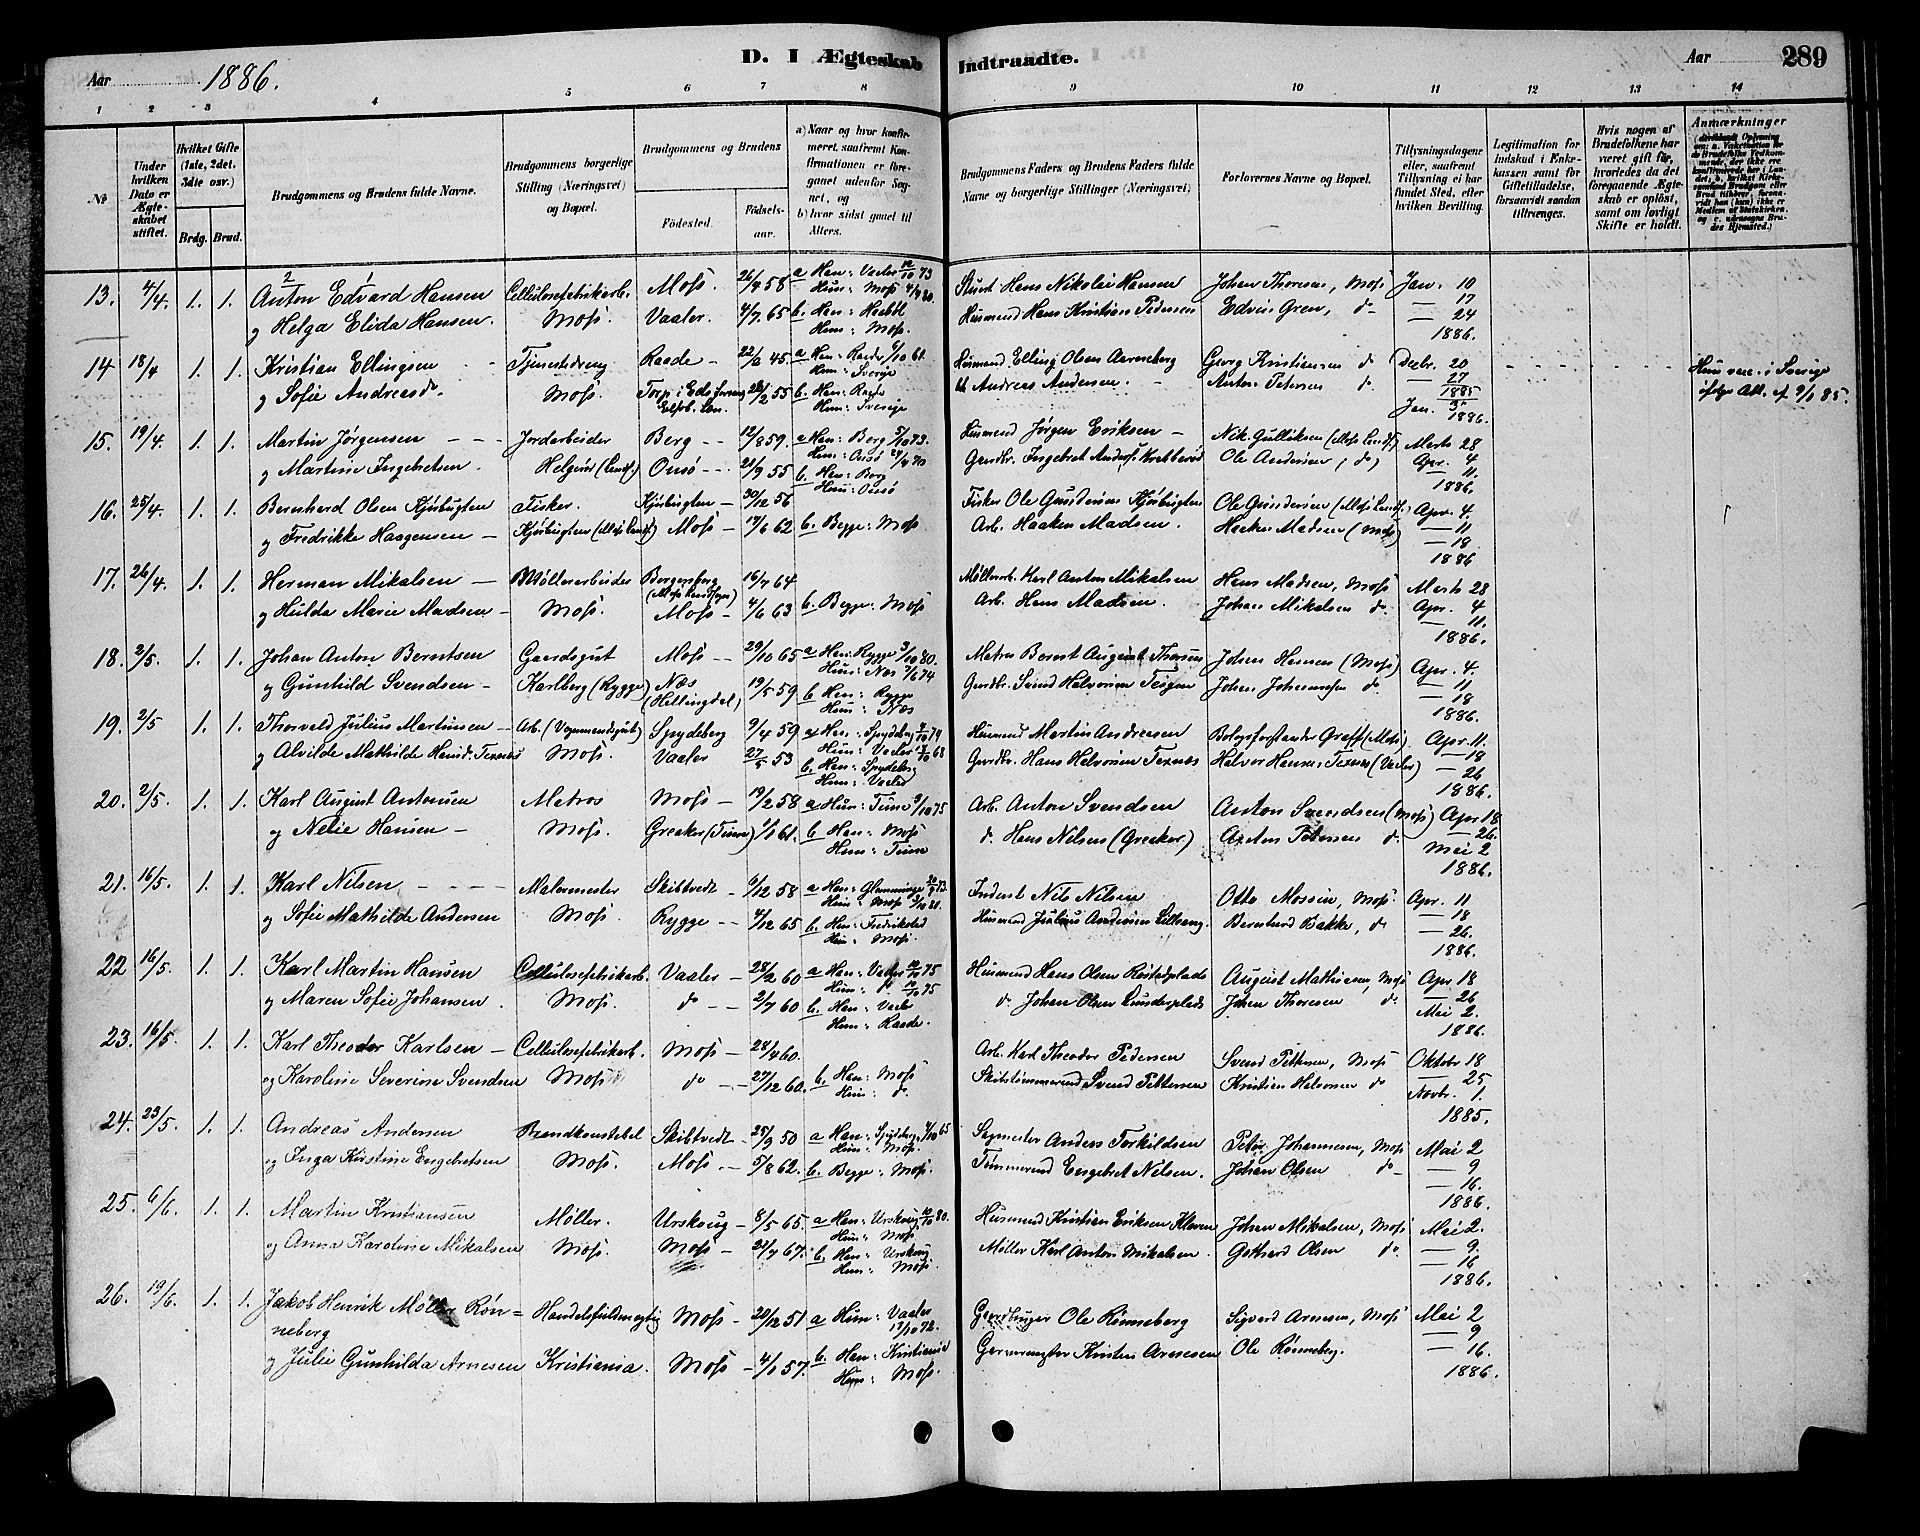 D. I Ægteskab Indtraadte.
Aar 1886.
Aar 289
1 2 3 4 5 6 7 8 9 10 11 12 13 14
No
Under hvilken Dato er Ægteskabet stiftet.
Hvilket Gifte (1ste, 2det, 3dte osv.)
Brdg. Brud.
Brudgommens og Brudens fulde Navne.
Brudgommens borgerlige Stilling (Næringsvei) og Bopæl.
Brudgommens og Brudens
Fødested. Fødselsaar.
a) Naar og hvor konfirmeret, saafremt Konfirmationen er foregaaet udenfor Sognet, og
b) hvor sidst gaaet til Alters.
Brudgommens Faders og Brudens Faders fulde Navne og borgerlige Stillinger (Næringsvei)
Forlovernes Navne og Bopæl.
Tillysningsdagene eller, saafremt Tillysning ei har fundet Sted, efter hvilken Bevilling.
Legitimation for Indskud i Enkekassen samt for Giftetilladelse, forsaavidt saadan tiltrænges.
Hvis nogen af Brudefolkene har været gift før, hvorledes da det foregaaende Ægteskab er opløst, samt om lovligt Skifte er holdt.
Anmærkninger
13. 4/4. 1. 1. Anton Edvard Hansen Cellulosefabrikarb. Moss 26/4 58 a Han: Vaaler 12/10 73 Hans Nikolai Hansen Johan Thoresen, Moss Jan. 10
Hun: Moss 4/4 80. — 17
og Helga Elida Hansen. Moss. Vaaler. 4/7 65 b. Han: Haabøl Husmand Hans Kristian Pedersen Edvin Gren, do — 24
Hun: Moss. 1886.
14 18/4 1. 1. Kristian Ellingsen Tjenestedreng Raade 22/2 45. a Han: Raade 6/10 61. Husmand Elling Olsen Aarneberg Georg Kristiansen do Decbr. 20
Hun: Sverige — 27
og Sofie Andreasd. Moss. 2 55 b. Han: Raade Andreas Andersen. Anton Petersen do. 1885
Hun: Sverige Jan. 3
1886.
Hun var i Sverige
ifølge Att. af 9/1 85.
15. 19/4. 1. 1. Martin Jørgensen Jordarbeider Berg 12/8 59. a Han: Berg 5/10 73. Husmand Jørgen Eriksen Nik. Gulliksen (Moss Landss.) Marts 28
Hun: Onsø 24/4 70
og Martine Ingebretsen. Helgerød (Landss.) Onsø 21/9 55 b. Han: Berg Gaardbr. Ingebret Anders. Ole Andersen (do) Apr. 4
Hun: Onsø — 11.
1886.
16. 25/4. 1. 1. Bernhard Olsen Kjøbugten Fisker. Kjøbugten 30/12 56 Fisker Ole Gundersen Kjøbugten Ole Gundersen (Moss Landss.) Apr. 4.
og Fredrikke Haagensen Kjøbugten (Moss Landss.) Moss 17/6 62 b. Begge: Moss Arb. Haaken Madsen. Haaken Madsen (Moss) — 11
— 18
1886
17. 26/4. 1. 1. Herman Mikalsen Møllerarbeider Borgersborg 16/7 64 Møllerarb. Karl Anton Mikalsen Hans Madsen, Moss Marts 28
(Moss Landsogn)
og Hulda Marie Madsen Moss. Moss 4/6 63 b. Begge: Moss Arb. Hans Madsen. Johan Mikalsen do. Apr. 4
— 11.
1886.
18. 2/5. 1. 1. Johan Anton Berntsen Gaardsgut Moss 29/10 65 a Han: Rygge 3/10 80. Matros Bernt August Thorsen Johan Hansen (Moss) Apr. 4.
Hun: Næs 7/6 74
og Gunhild Svendsen Karlberg (Rygge) Næs 19/5 59 b. Han: Rygge Gaardbr. Svend Halvorsen Teigen Johan Johannesen do. — 11
(Hallingdal) Hun: Næs — 18
1886.
19. 2/5. 1. 1. Thorvald Julius Martinsen Arb. (Vognmandsgut) Spydeberg 9/4 59 a Han: Spydeberg Husmand Martin Andresen Bologsforstander Graff (Moss) Apr. 11.
Hun: Vaaler
og Alvilde Mathilde Hansd. Texnæs Moss. Vaaler 27/5 53 b. Han: Spydeberg Gaardbr. Hans Halvorsen Texnæs Halvor Hansen Texnæs (Vaaler) — 18
Hun: Vaaler — 26
1886.
20. 2/5. 1. 1. Karl August Antonsen Matros Moss 19/2 58 a Hun: Tune 9/10 75 Arb. Anton Svendsen Anton Svendsen (Moss) Apr 18
og Nelie Hansen Moss. Greaker (Tune) 1/1 61. b Han: Moss do. Hans Nilsen (Greaker) Anton Petersen do. — 26.
Hun: Tune Mai 2
1886.
21. 16/5. 1. 1. Karl Nilsen Malermester Skibtvedt 9/12 58 a Han: Glemminge Inderst Nils Nilsen Otto Mossin, Moss Apr. 11
Hun: Moss
og Sofie Mathilde Andersen Moss. Rygge 7/12 65 b. Han: Fredrikstad Husmand Julius Andersen Bernhard Bakke, do — 18
Hun: Moss. — 26.
1886.
22 16/5. 1. 1. Karl Martin Hansen Cellulosefabrikarb. Vaaler 28/2 60 a Han: Vaaler 12/10 75 Husmand Hans Olsen August Mathisen, Moss Apr. 18
Hun: do 12/10 75 — 26
og Maren Sofie Johansen. Moss. do 2/7 60 b. Han: Vaaler do. Johan Olsen Lunderplads Johan Thoresen do. Mai 2.
Hun: Raade. 1886.
23. 16/5. 1. 1. Karl Theodor Karlsen Cellulosefabrikarb. Moss 28/4 60. Arb. Karl Theodor Pedersen Svend Pettersen, Moss Oktober 18
og Karoline Severine Svendsen Moss do 27/12 60. b. Han: Moss Skibstømmermand Svend Pettersen Kristian Halvorsen do — 25
Hun: do. Novbr. 1.
1885.
24. 23/5. 1. 1. Andreas Andersen Brandkonstabel Skibtvedt 25/9 50 a Han: Spydeberg 1/10 65 Sagmester Anders Torkildsen Peter Johannesen, Moss Mai 2
Hun: Moss.
og Inga Kirstine Engebretsen Moss. Moss 5/8 62. b. Begge: Moss. Tømmermand Engebret Nilsen. Johan Olsen do — 9
— 16.
1886.
25. 6/6. 1. 1. Martin Kristiansen Møller. Urskoug 8/5 65. a Han: Urskoug 10/10 80. Husmand Kristian Eriksen Johan Mikalsen, Moss Mai 2.
Hun: Moss
og Anna Karoline Mikalsen Moss. Moss 23/7 67. b. Han: Urskoug Møller Karl Anton Mikalsen. Gothard Olsen do. — 9.
Hun: Moss. — 16
1886.
26. 19/6. 1. 1. Jakob Henrik Møller Røn= Handelsfuldmægtig Moss 20/12 51 a Hun: Vaaler Ole Rønneberg Sigvard Arnesen, Moss Mai 2
neberg 13/10 72. — 9
og Julie Gunhilda Arnesen Kristiania. Moss 4/1 57. b. Han: Kristiania Garvermester Kristen Arnesen Ole Rønneberg. — 16.
Hun: Moss. 1886.